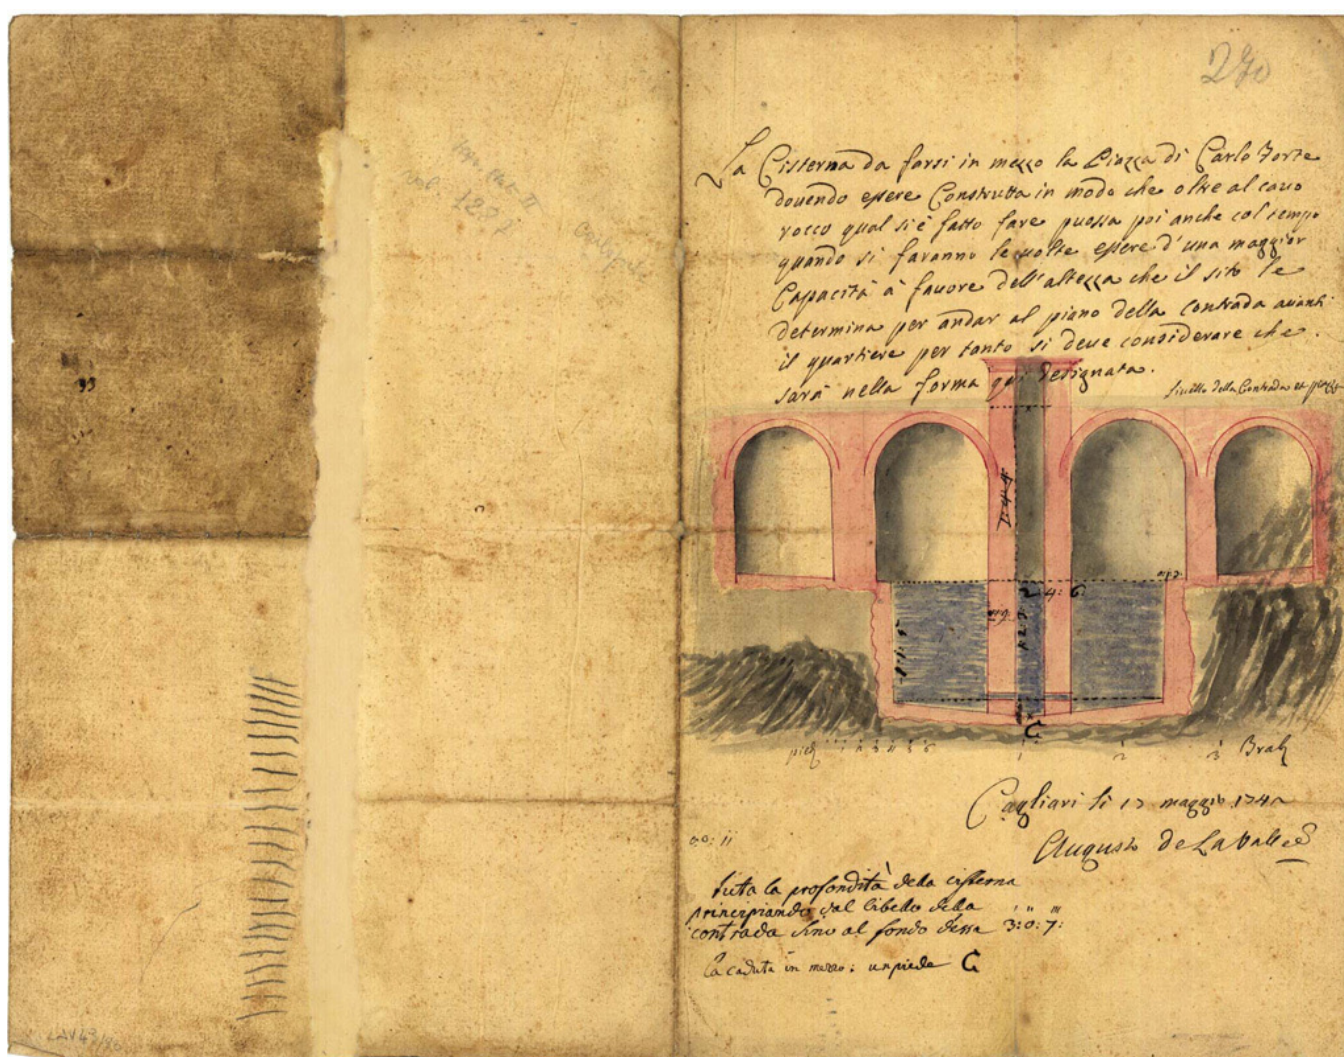 270
La Cisterna da farsi in mezzo la Piazza di Carlo Forte
douendo essere Construtta in modo che oltre al cauo
rocco qual si è fatto fare puossa poi anche col tempo
quando si faranno le uolte essere d'una maggior
Capacità à fauore dell'altezza che il sito le
determina per andar al piano della contrada auanti
il quartiere per tanto si deue considerare che
sarà nella forma qui designata.
Liuello della Contrada et piazza
1: 4: 4:
2: 4: 6
1: 2: 9:
1: 1: 5
C
piedi 1 2 3 4 5 6 1 2 3 Trab
Cagliari li 17 maggio
Augusto de La Vallee
0: 0: 11
tuta la profondità della cisterna
principiando dal libello della
contrada sino al fondo dessa 3: 0: 7:
la caduta in mezzo: un piede C
93
1227
LAV43/80